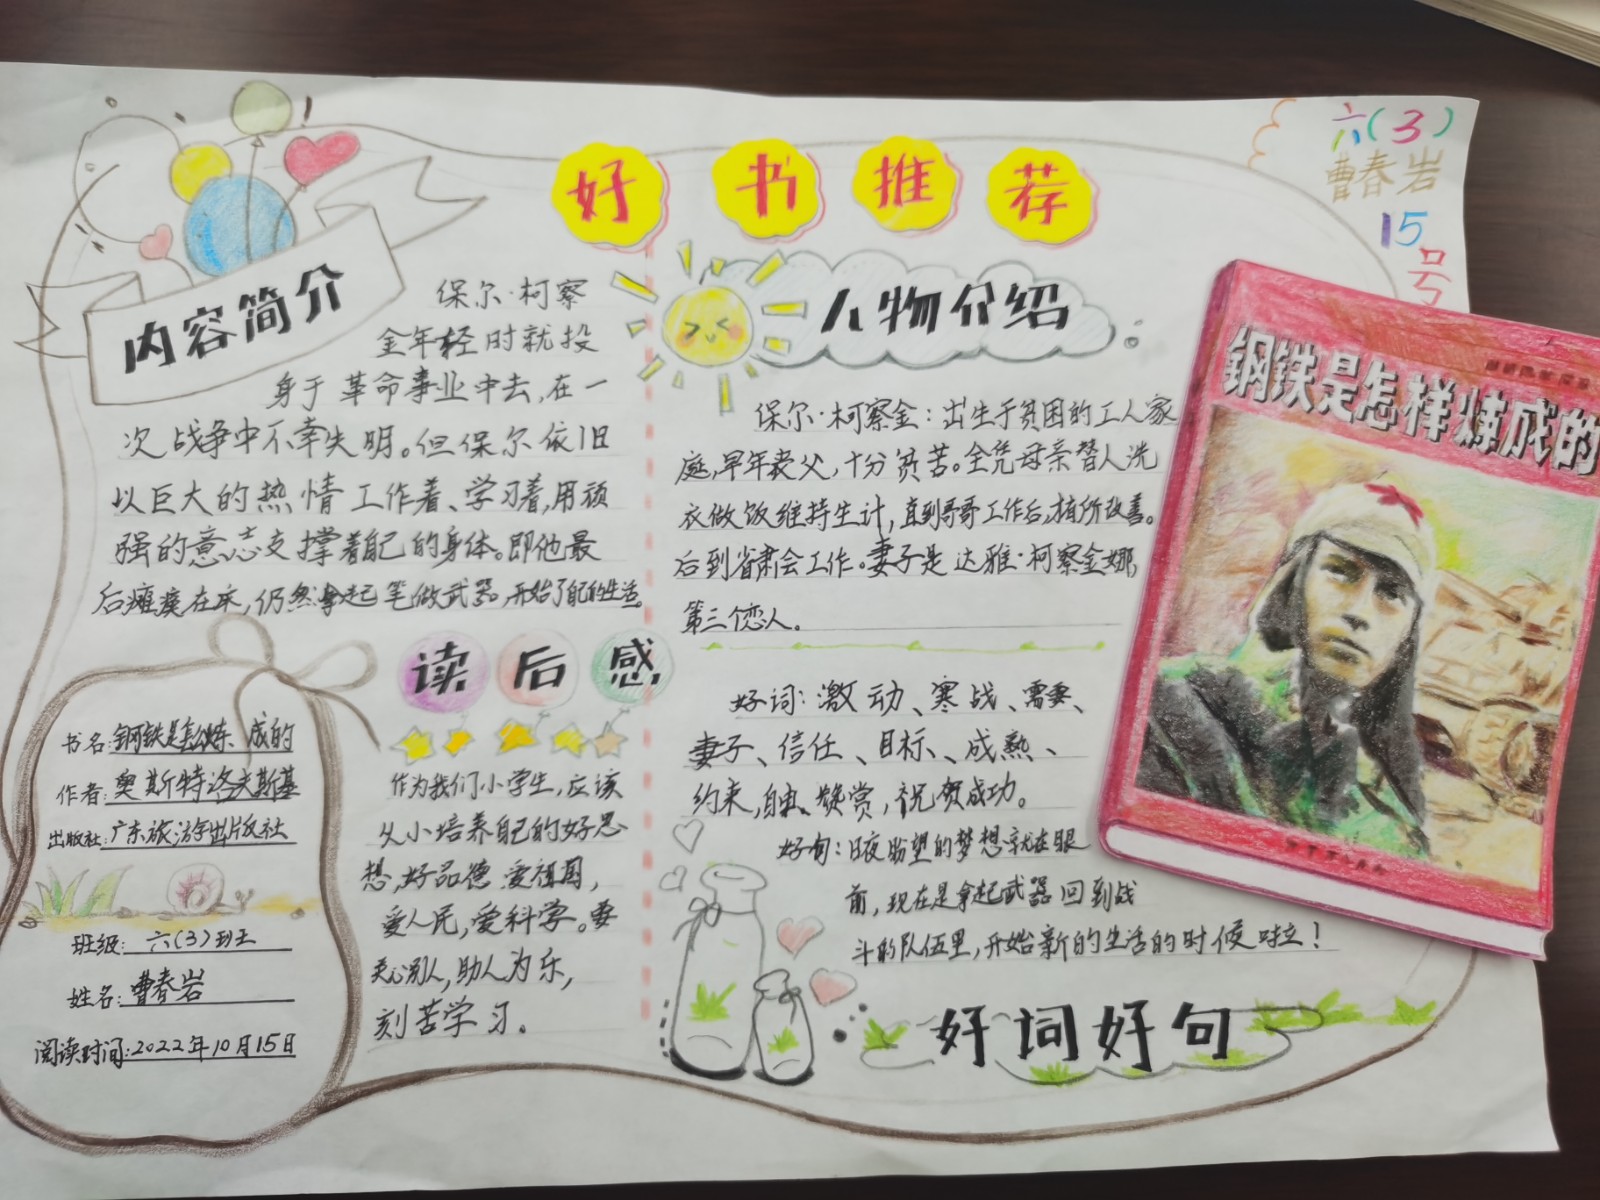 好书推荐
六(3)
曹春岩
15
号
内容简介
保尔·柯察
金年轻时就投
身于革命事业中去,在一
次战争中不幸失明。但保尔依旧
以巨大的热情工作着、学习着,用顽
强的意志支撑着自己的身体。即他最
后瘫痪在床,仍然拿起笔做武器,开始了自己的生活。
人物介绍
保尔·柯察金:出生于贫困的工人家
庭,早年丧父,十分贫苦。全凭母亲替人洗
衣做饭维持生计,直到哥哥工作后,有所改善。
后到省肃会工作。妻子是达雅·柯察金娜,
第三个恋人。
钢铁是怎样炼成的
读后感
作为我们小学生,应该
从小培养自己的好思
想,好品德 爱祖国,
爱人民,爱科学。要
关心别人,助人为乐,
刻苦学习。
书名:钢铁是怎么炼、成的
作者:奥斯特洛夫斯基
出版社:广东旅游出版社
班级: 六(3)班
姓名:曹春岩
阅读时间:2022年10月15日
好词:激动、寒战、需要、
妻子、信任、目标、成熟、
约束,自由、疑赏,祝贺成功。
好句:日夜盼望的梦想就在眼
前,现在是拿起武器回到战
斗的队伍里,开始新的生活的时候啦!
好词好句